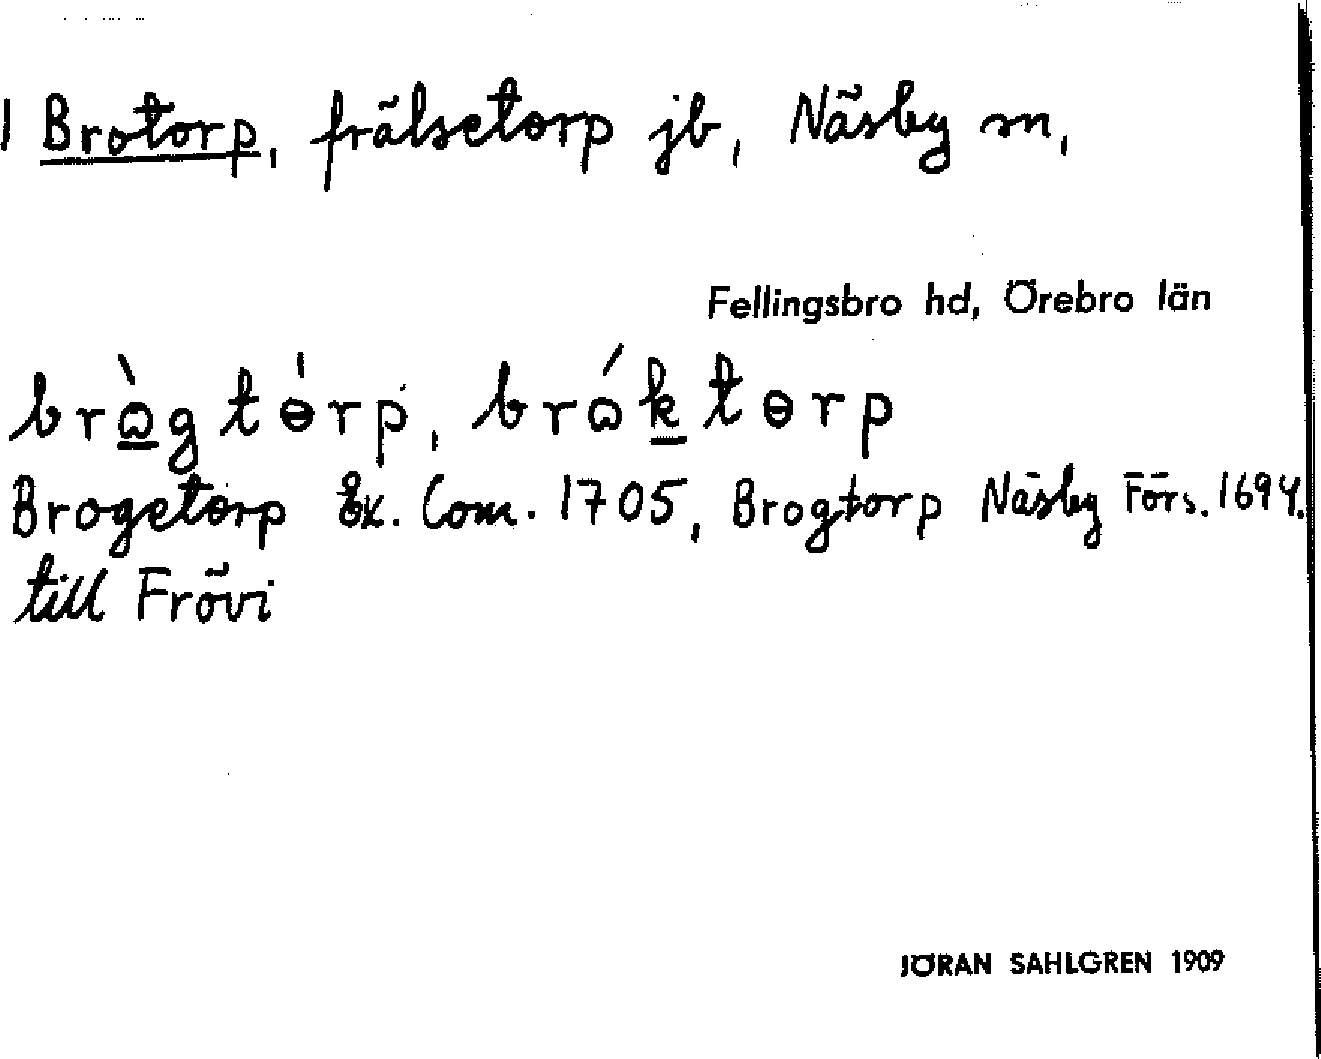 1 Brotorp, frälsetorp jb, Näsby sn,
Fellingsbro hd, Örebro län
brògtɵ́rp, brók̲tɵrp
Brogetorp Ex. Com. 1705, Brogtorp Näsby Förs. 1694.
till Frövi
JÖRAN SAHLGREN 1909